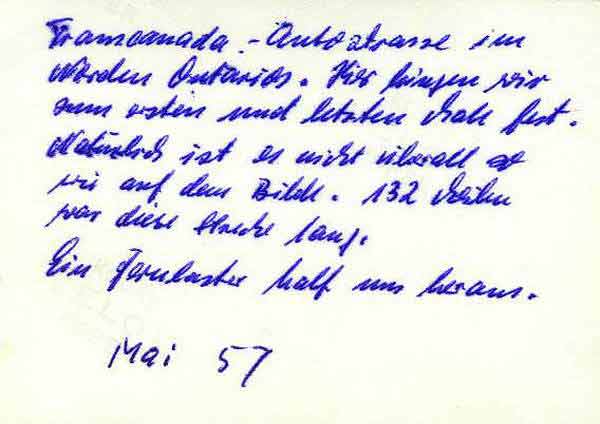 Transcanada.-Autostrasse im
Norden Ontarios. Hier hingen wir
zum ersten und letzten Male fest.
Natürlich ist es nicht überall so
wie auf dem Bilde. 132 Meilen
war diese Strecke lang.
Ein Fernlaster half uns heraus.
Mai 57